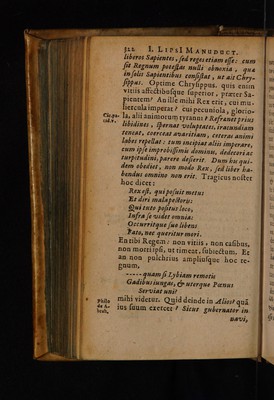 322 I. LIPSI MANUDUCT.
liberos Sapientes, sed reges etiam esse: cum
sit Regnum potestas nulli obnoxia, quæ
in solis Sapientibus consistat, ut ait Chry-
sippus. Optime Chrysippus. quis enim
vitiis affectibusque superior, præter Sa-
pientem? An ille mihi Rex erit, cui mu-
liercula imperat? cui pecuniola, gloriola,
alii animorum tyranni? Refrænet prius
libidines, spernat voluptates, iracundiam
teneat, coerceat avaritiam, ceteras animi
labes repellat: tum incipiat aliis imperare,
cum ipse improbissimis dominis, dedecori ac
turpitudini, parere desierit. Dum his qui-
dem obediet, non modo Rex, sed liber ha-
bendus omnino non erit. Tragicus noster
hoc dicet:
Rex est, qui posuit metus
Et diri mala pectoris:
Qui tuto positus loco,
Infra se videt omnia:
Occurritque suo libens
Fato, nec queritur mori.
En tibi Regem? non vitiis, non casibus,
non morti ipsi, ut timeat, subiectum. Et
an non pulchrius ampliusque hoc re-
gnum,
-----quam si Lybiam remotis
Gadibus iungas, & uterque Pœnus
Serviat uni?
mihi videtur. Quid deinde in Alios? quā
ius suum exercet? Sicut gubernator in
navi,